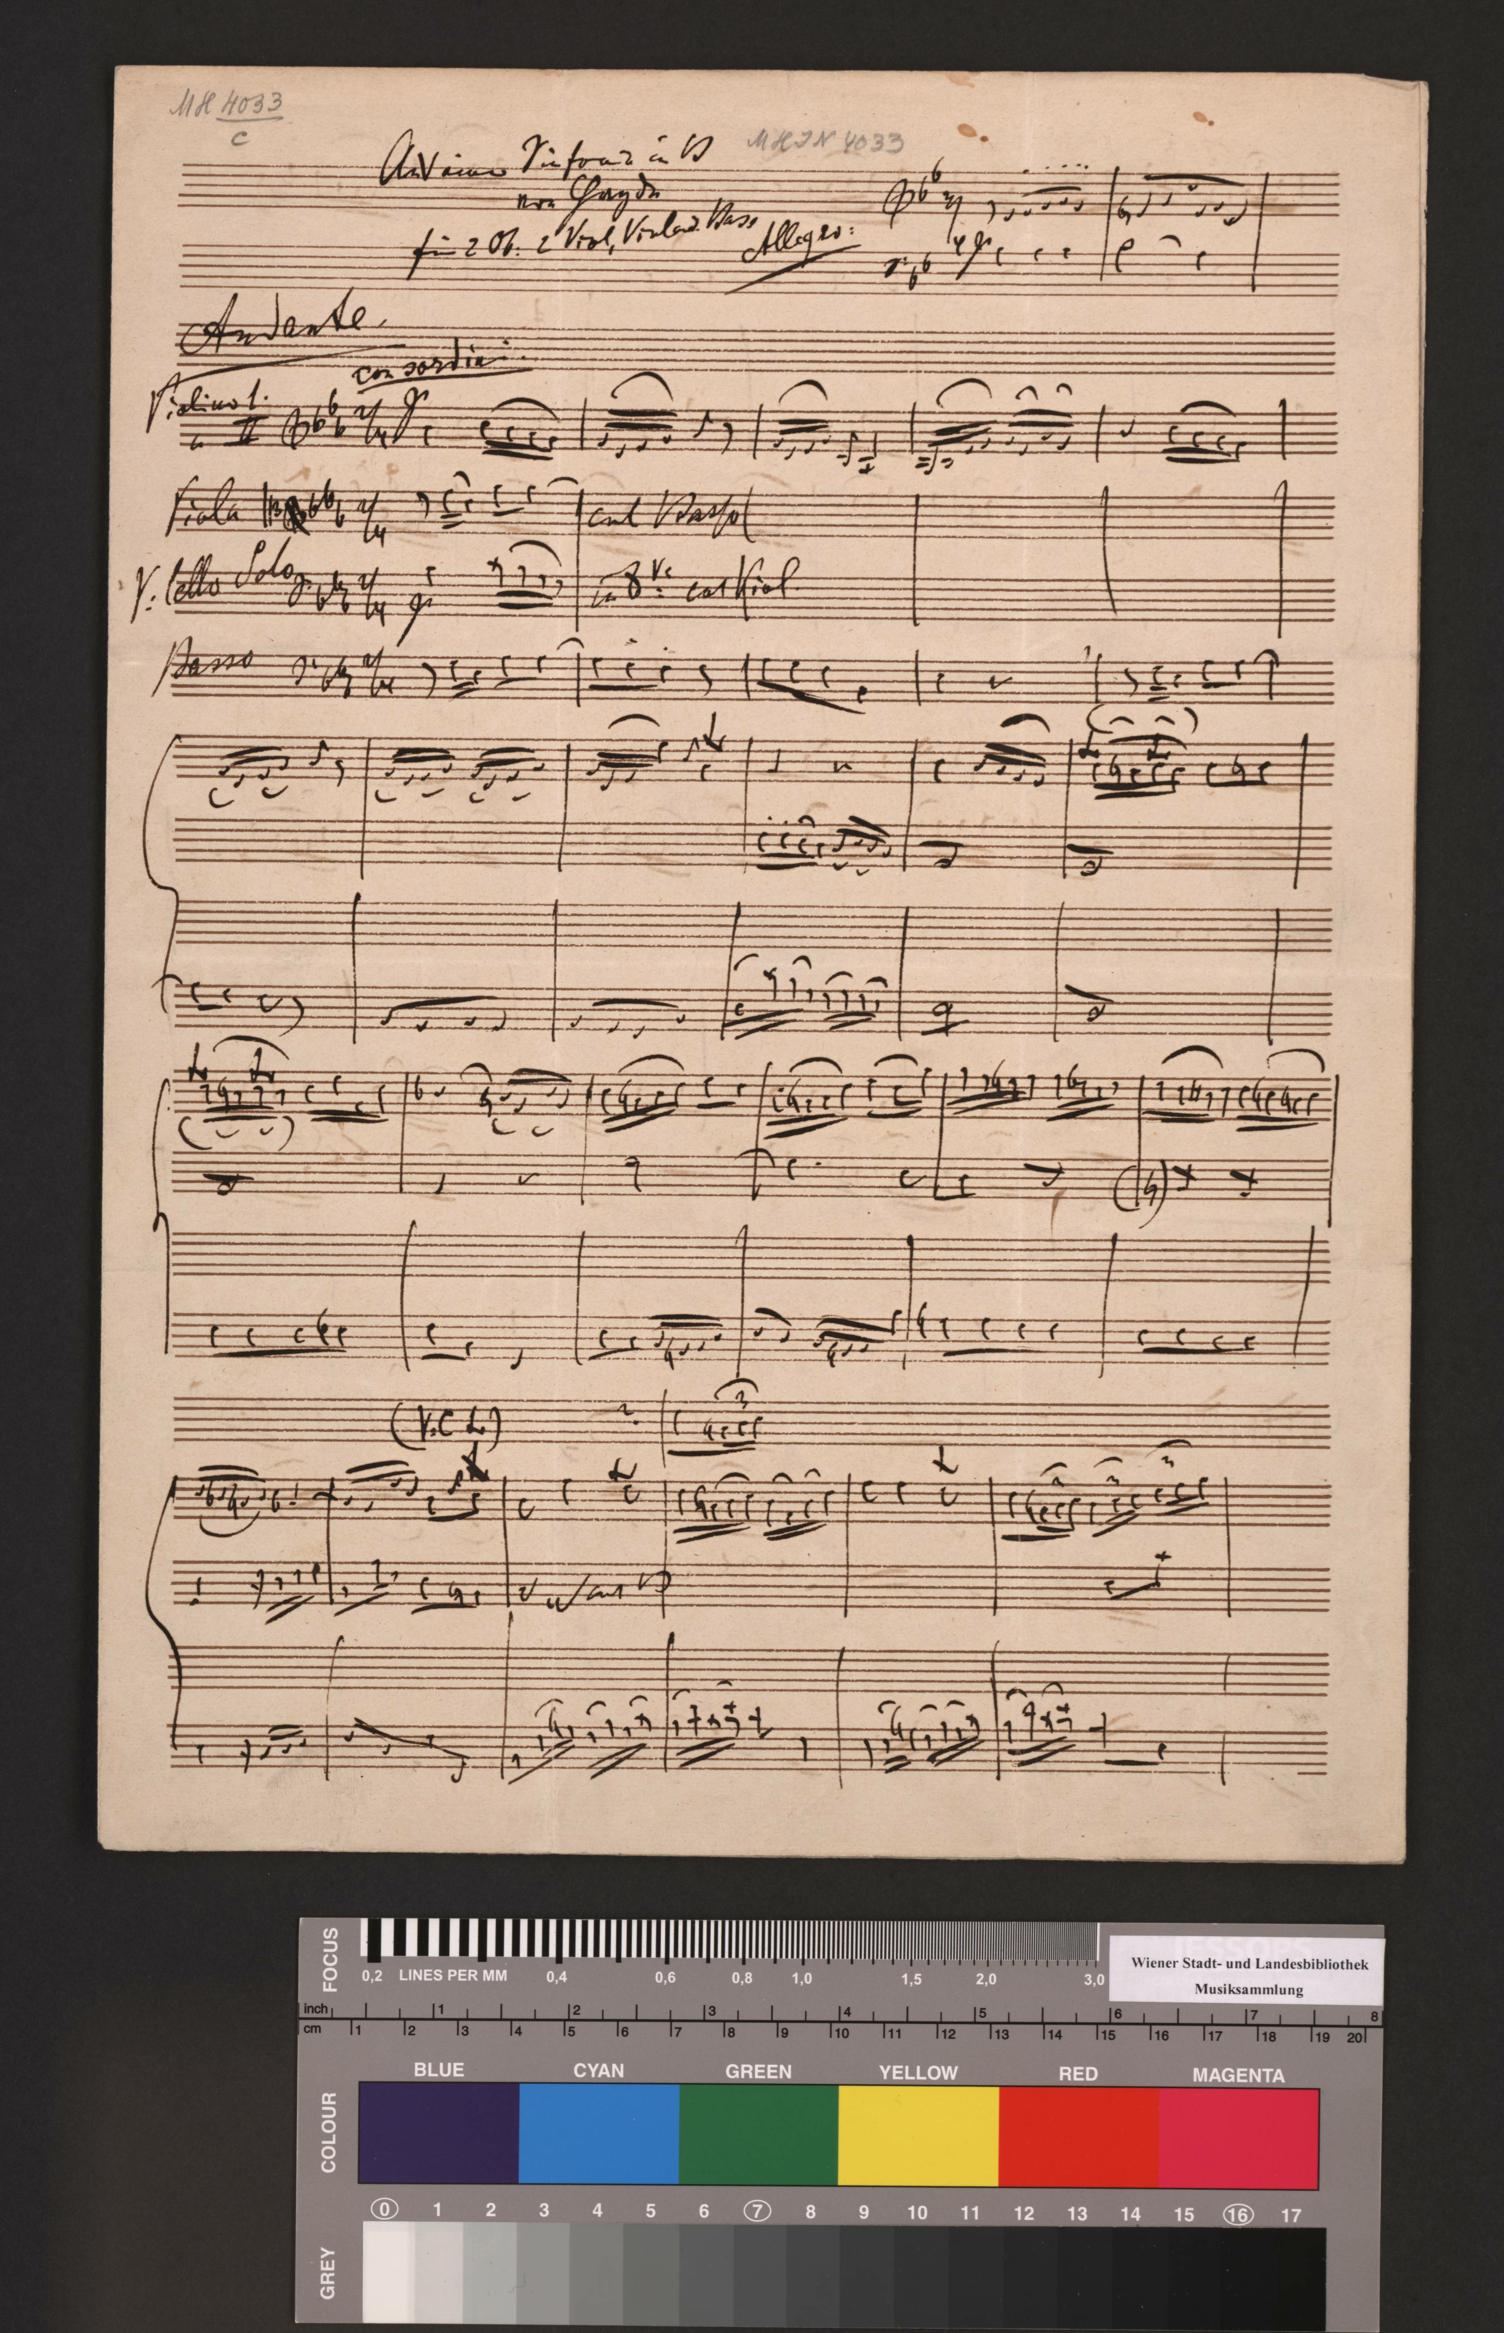 MH 4033
c
Aus einer Sinfonie in B
MHIN 4033
von Haydn
für 2 Ob: 2 Viol, Viola u. Bass
Allegro:
Andante
con sordini
Violino 1.
u II
2/4
Viola 2/4 col Basso
V: Cello Solo 2/4 in 8va col Viol.
Basso 2/4
(V.C L)
3
2 3 3
FOCUS
0,2 LINES PER MM 0,4 0,6 0,8 1,0 1,5 2,0 3,0
Wiener Stadt- und Landesbibliothek
Musiksammlung
inch 1 2 3 4 5 6 7 8
cm 1 2 3 4 5 6 7 8 9 10 11 12 13 14 15 16 17 18 19 20
COLOUR
BLUE CYAN GREEN YELLOW RED MAGENTA
0 1 2 3 4 5 6 7 8 9 10 11 12 13 14 15 16 17
GREY